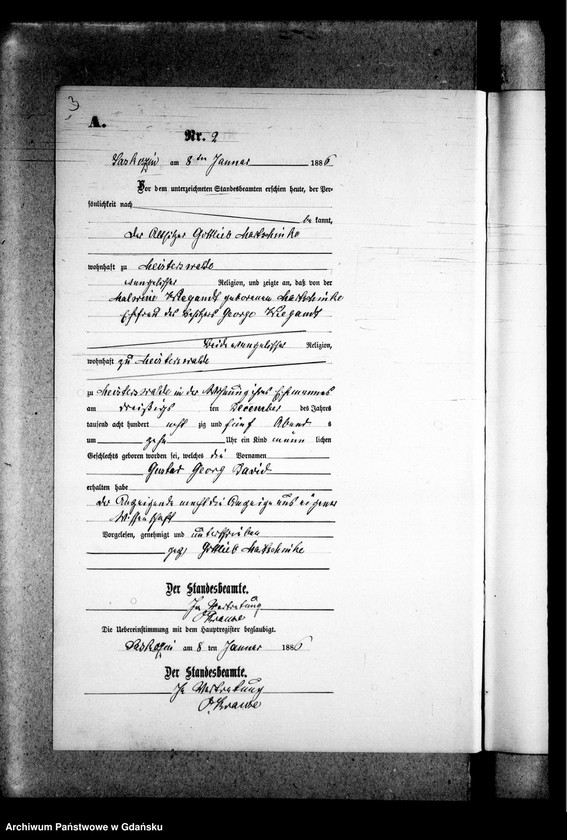 3
A.
Nr. 2
Saskozin am 8 ten Januar 1886
Vor dem unterzeichneten Standesbeamten erschien heute, der Per-
sönlichkeit nach
be kannt,
der Altsitzer Gottlieb
wohnhaft zu Meisterswalde
evangelischer Religion, und zeigte an, daß von der
Wiegandt geborenen
Ehefrau des Besitzers George Wiegandt
Beide evangelischer Religion,
wohnhaft zu Meisterswalde
zu Meisterswalde in der Wohnung ihres Ehemannes
am dreißigs ten December des Jahres
tausend acht hundert acht zig und fünf Abend s
um zehn Uhr ein Kind männ lichen
Geschlechts geboren worden sei, welches die Vornamen
Gustav Georg David
erhalten habe
der Anzeigende macht die Anzeige aus eigener
Wissenschaft
Vorgelesen, genehmigt und unterschrieben
gez. Gottlieb
Der Standesbeamte.
In Vertretung
Krause
Die Uebereinstimmung mit dem Hauptregister beglaubigt.
Saskozin am 8 ten Januar 1886
Der Standesbeamte.
In Vertretung
Krause
Archiwum Państwowe w Gdańsku